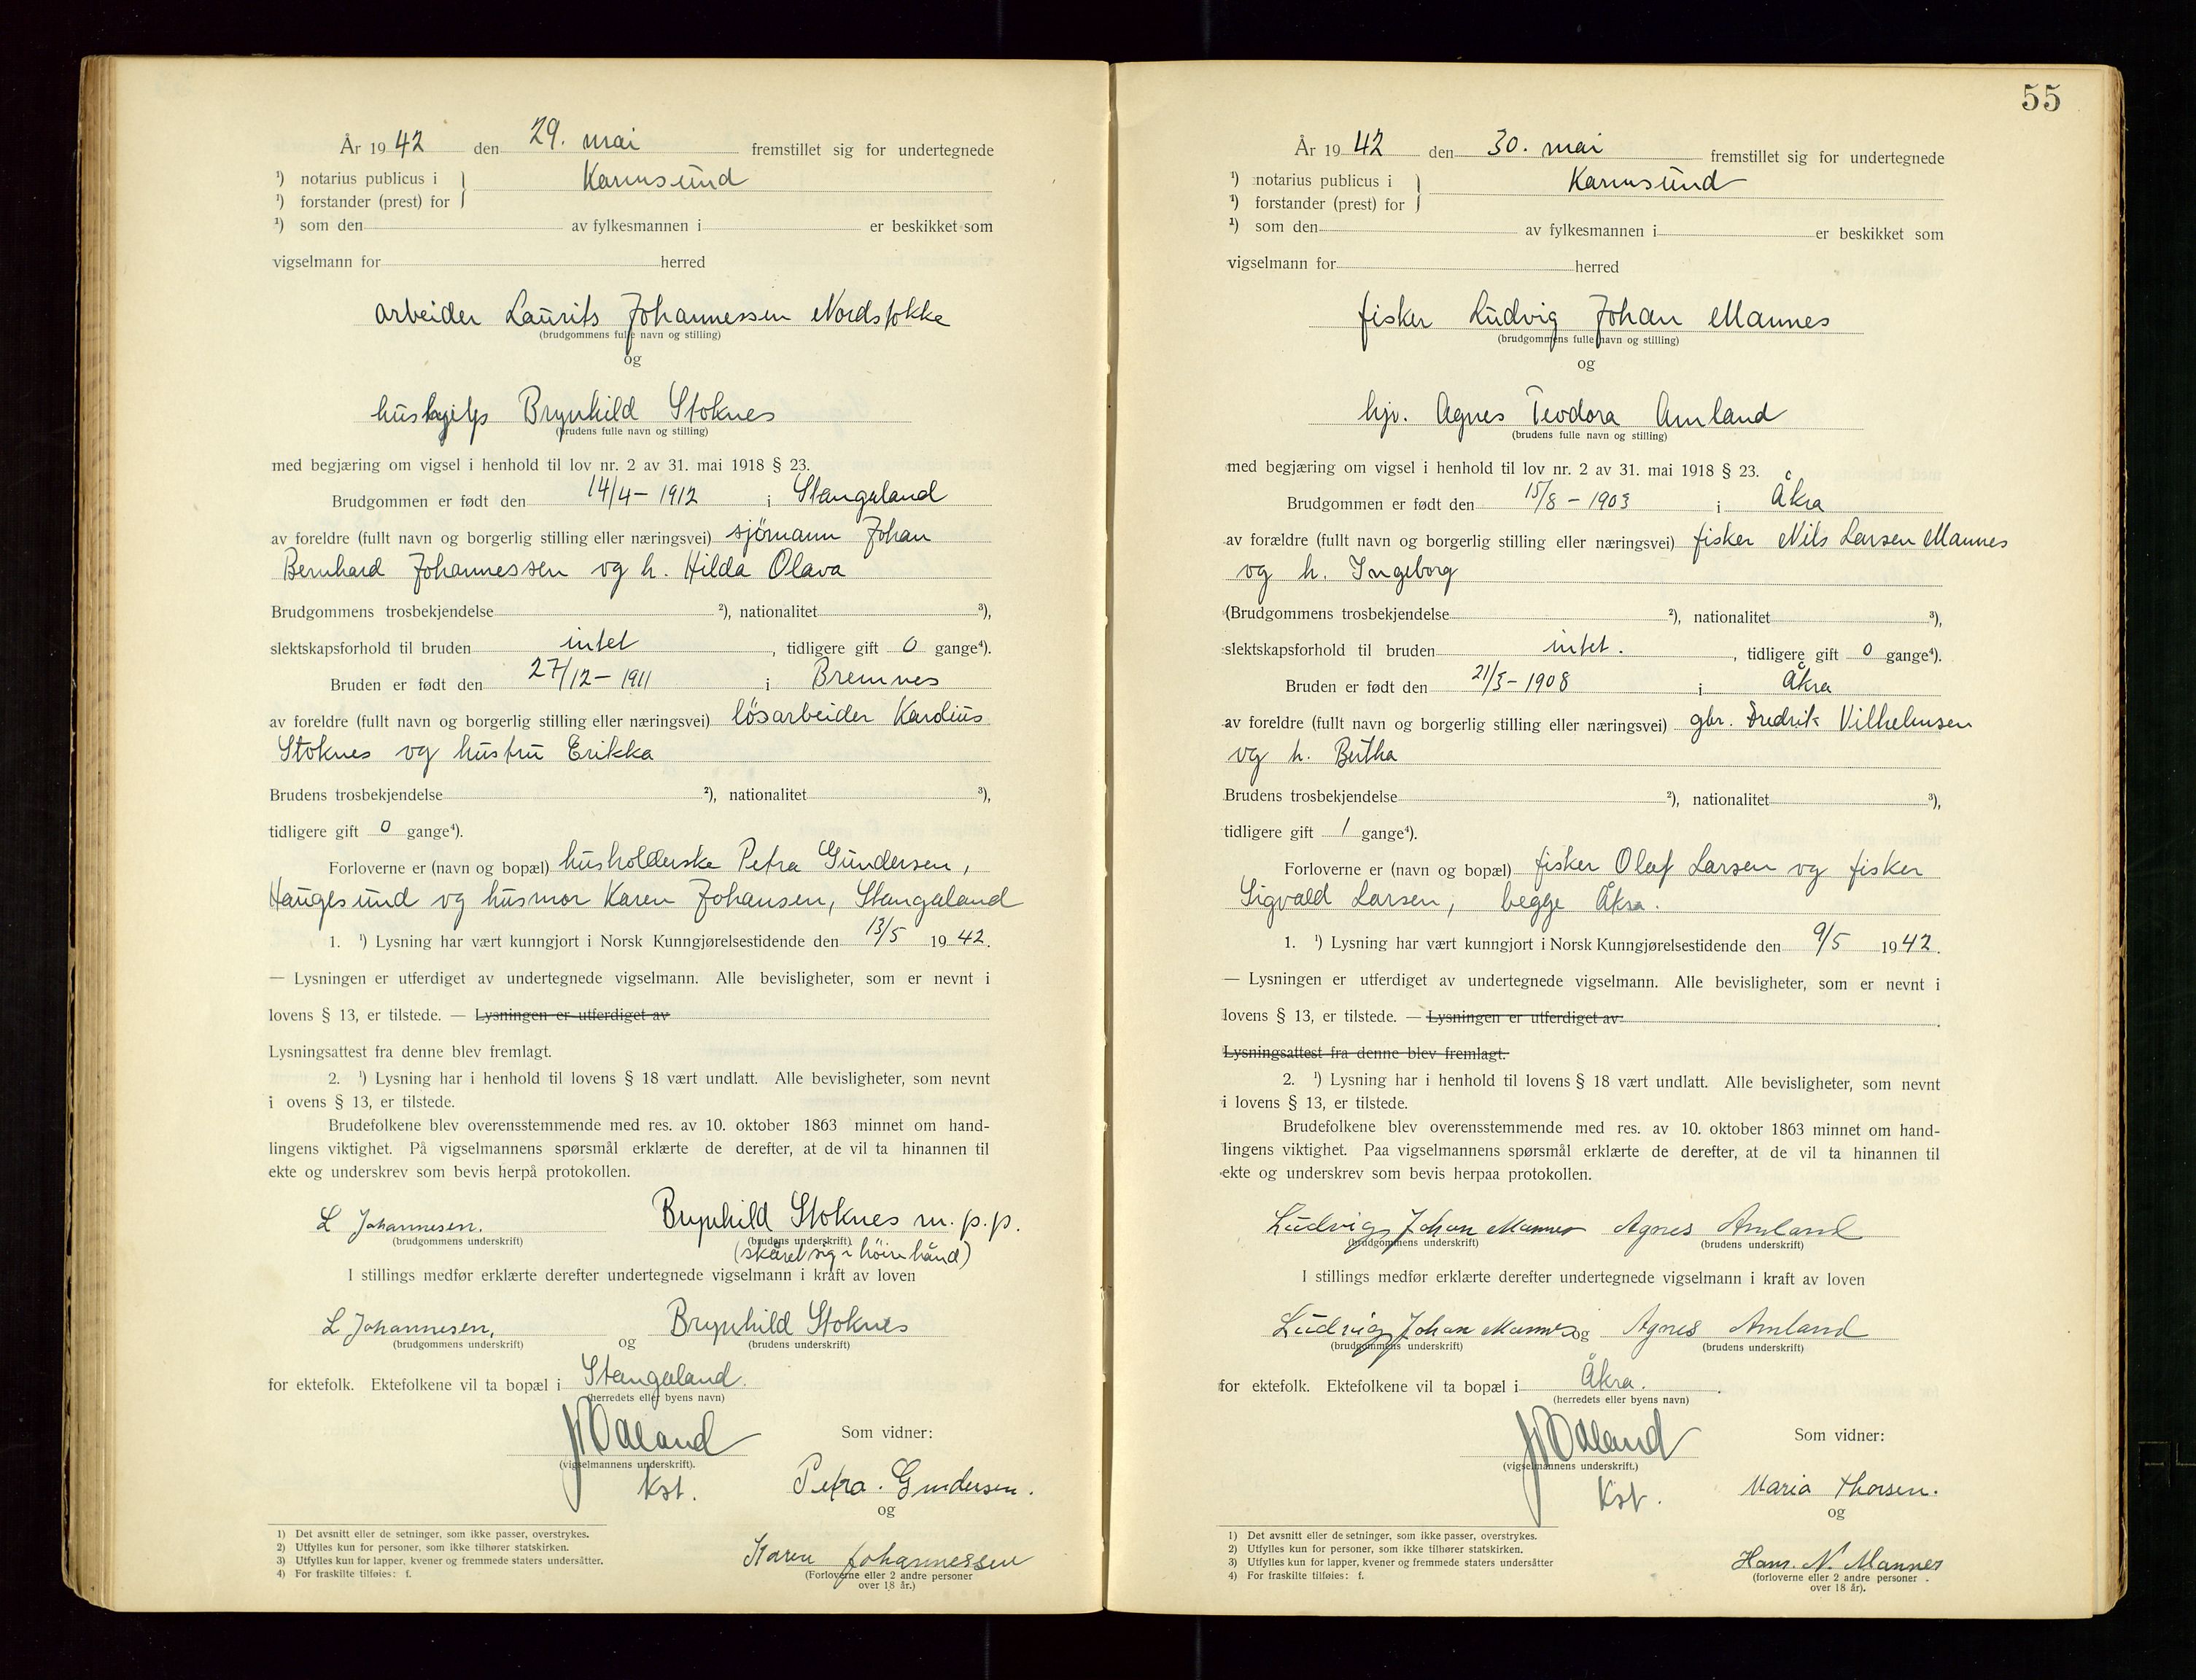 År 1942 den 29. mai fremstillet sig for undertegnede
¹) notarius publicus i } Karmsund
¹) forstander (prest) for
¹) som den av fylkesmannen i er beskikket som
vigselmann for herred
arbeider Laurits Johannessen Nordstokke
(brudgommens fulle navn og stilling)
og
hushjelp Brynhild Stoknes
(brudens fulle navn og stilling)
med begjæring om vigsel i henhold til lov nr. 2 av 31. mai 1918 § 23.
Brudgommen er født den 14/4 - 1912 i Stangaland
av foreldre (fullt navn og borgerlig stilling eller næringsvei) sjömann Johan
Bernhard Johannessen og h. Hilda Olava
Brudgommens trosbekjendelse ²), nationalitet ³),
slektskapsforhold til bruden intet, tidligere gift 0 gange⁴).
Bruden er født den 27/12 - 1911 i Bremnes
av foreldre (fullt navn og borgerlig stilling eller næringsvei) lösarbeider Kardius
Stoknes og hustru Erikka
Brudens trosbekjendelse ²), nationalitet ³),
tidligere gift 0 gange⁴).
Forloverne er (navn og bopæl) husholderske Petra Gundersen,
Haugesund og husmor Karen Johansen, Stangaland
1. ¹) Lysning har vært kunngjort i Norsk Kunngjørelsestidende den 13/5 1942.
— Lysningen er utferdiget av undertegnede vigselmann. Alle bevisligheter, som er nevnt i
lovens § 13, er tilstede. — Lysningen er utferdiget av
Lysningsattest fra denne blev fremlagt.
2. ¹) Lysning har i henhold til lovens § 18 vært undlatt. Alle bevisligheter, som nevnt
i ovens § 13, er tilstede.
Brudefolkene blev overensstemmende med res. av 10. oktober 1863 minnet om hand-
lingens viktighet. På vigselmannens spørsmål erklærte de derefter, at de vil ta hinannen til
ekte og underskrev som bevis herpå protokollen.
L Johannesen. Brynhild Stoknes m. p. p.
(brudgommens underskrift) (brudens underskrift)
(skåret sig i höire hånd)
I stillings medfør erklærte derefter undertegnede vigselmann i kraft av loven
L Johannesen, og Brynhild Stoknes
(brudgommens underskrift) (brudens underskrift)
for ektefolk. Ektefolkene vil ta bopæl i Stangaland.
(herredets eller byens navn)
Som vidner:
(vigselmannens underskrift).
Kst. Petra. Gundersen.
og
Karen Johannessen
(Forloverne eller 2 andre personer
over 18 år.)
1) Det avsnitt eller de setninger, som ikke passer, overstrykes.
2) Utfylles kun for personer, som ikke tilhører statskirken.
3) Utfylles kun for lapper, kvener og fremmede staters undersåtter.
4) For fraskilte tilføies: f.
55
År 1942 den 30. mai fremstillet sig for undertegnede
¹) notarius publicus i } Karmsund
¹) forstander (prest) for
¹) som den av fylkesmannen i er beskikket som
vigselmann for herred
fisker Ludvig Johan Mannes
(brudgommens fulle navn og stilling)
og
hjv. Agnes Teodora Amland
(brudens fulle navn og stilling)
med begjæring om vigsel i henhold til lov nr. 2 av 31. mai 1918 § 23.
Brudgommen er født den 15/8 - 1903 i Åkra
av forældre (fullt navn og borgerlig stilling eller næringsvei) fisker Nils Larsen Mannes
og h. Ingeborg
(Brudgommens trosbekjendelse ²), nationalitet ³),
slektskapsforhold til bruden intet., tidligere gift 0 gange⁴).
Bruden er født den 21/5 - 1908 i Åkra
av foreldre (fullt navn og borgerlig stilling eller næringsvei) gbr. Fredrik Vilhelmsen
og h. Bertha
Brudens trosbekjendelse ²), nationalitet ³),
tidligere gift 1 gange⁴).
Forloverne er (navn og bopæl) fisker Olaf Larsen og fisker
Sigvald Larsen, begge Åkra.
1. ¹) Lysning har vært kunngjort i Norsk Kunngjørelsestidende den 9/5 1942.
— Lysningen er utferdiget av undertegnede vigselmann. Alle bevisligheter, som er nevnt i
lovens § 13, er tilstede. — Lysningen er utferdiget av
Lysningsattest fra denne blev fremlagt.
2. ¹) Lysning har i henhold til lovens § 18 vært undlatt. Alle bevisligheter, som nevnt
i lovens § 13, er tilstede.
Brudefolkene blev overensstemmende med res. av 10. oktober 1863 minnet om hand-
lingens viktighet. Paa vigselmannens spørsmål erklærte de derefter, at de vil ta hinannen til
ekte og underskrev som bevis herpaa protokollen.
Ludvig Johan Mannes Agnes Amland
(brudgommens underskrift) (brudens underskrift)
I stillings medfør erklærte derefter undertegnede vigselmann i kraft av loven
Ludvig Johan Mannes og Agnes Amland
(brudgommens underskrift) (brudens underskrift)
for ektefolk. Ektefolkene vil ta bopæl i Åkra.
(herredets eller byens navn)
Som vidner:
(vigselmannens underskrift.)
Kst. Maria Thorsen.
og
Hans. N. Mannes
(forloverne eller 2 andre personer
over 18 år).
1) Det avsnitt eller de setninger, som ikke passer, overstrykes.
2) Utfylles kun for personer, som ikke tilhører statskirken.
3) Utfylles kun for lapper, kvener og fremmede staters undersåtter
4) For fraskilte tilføies: f.